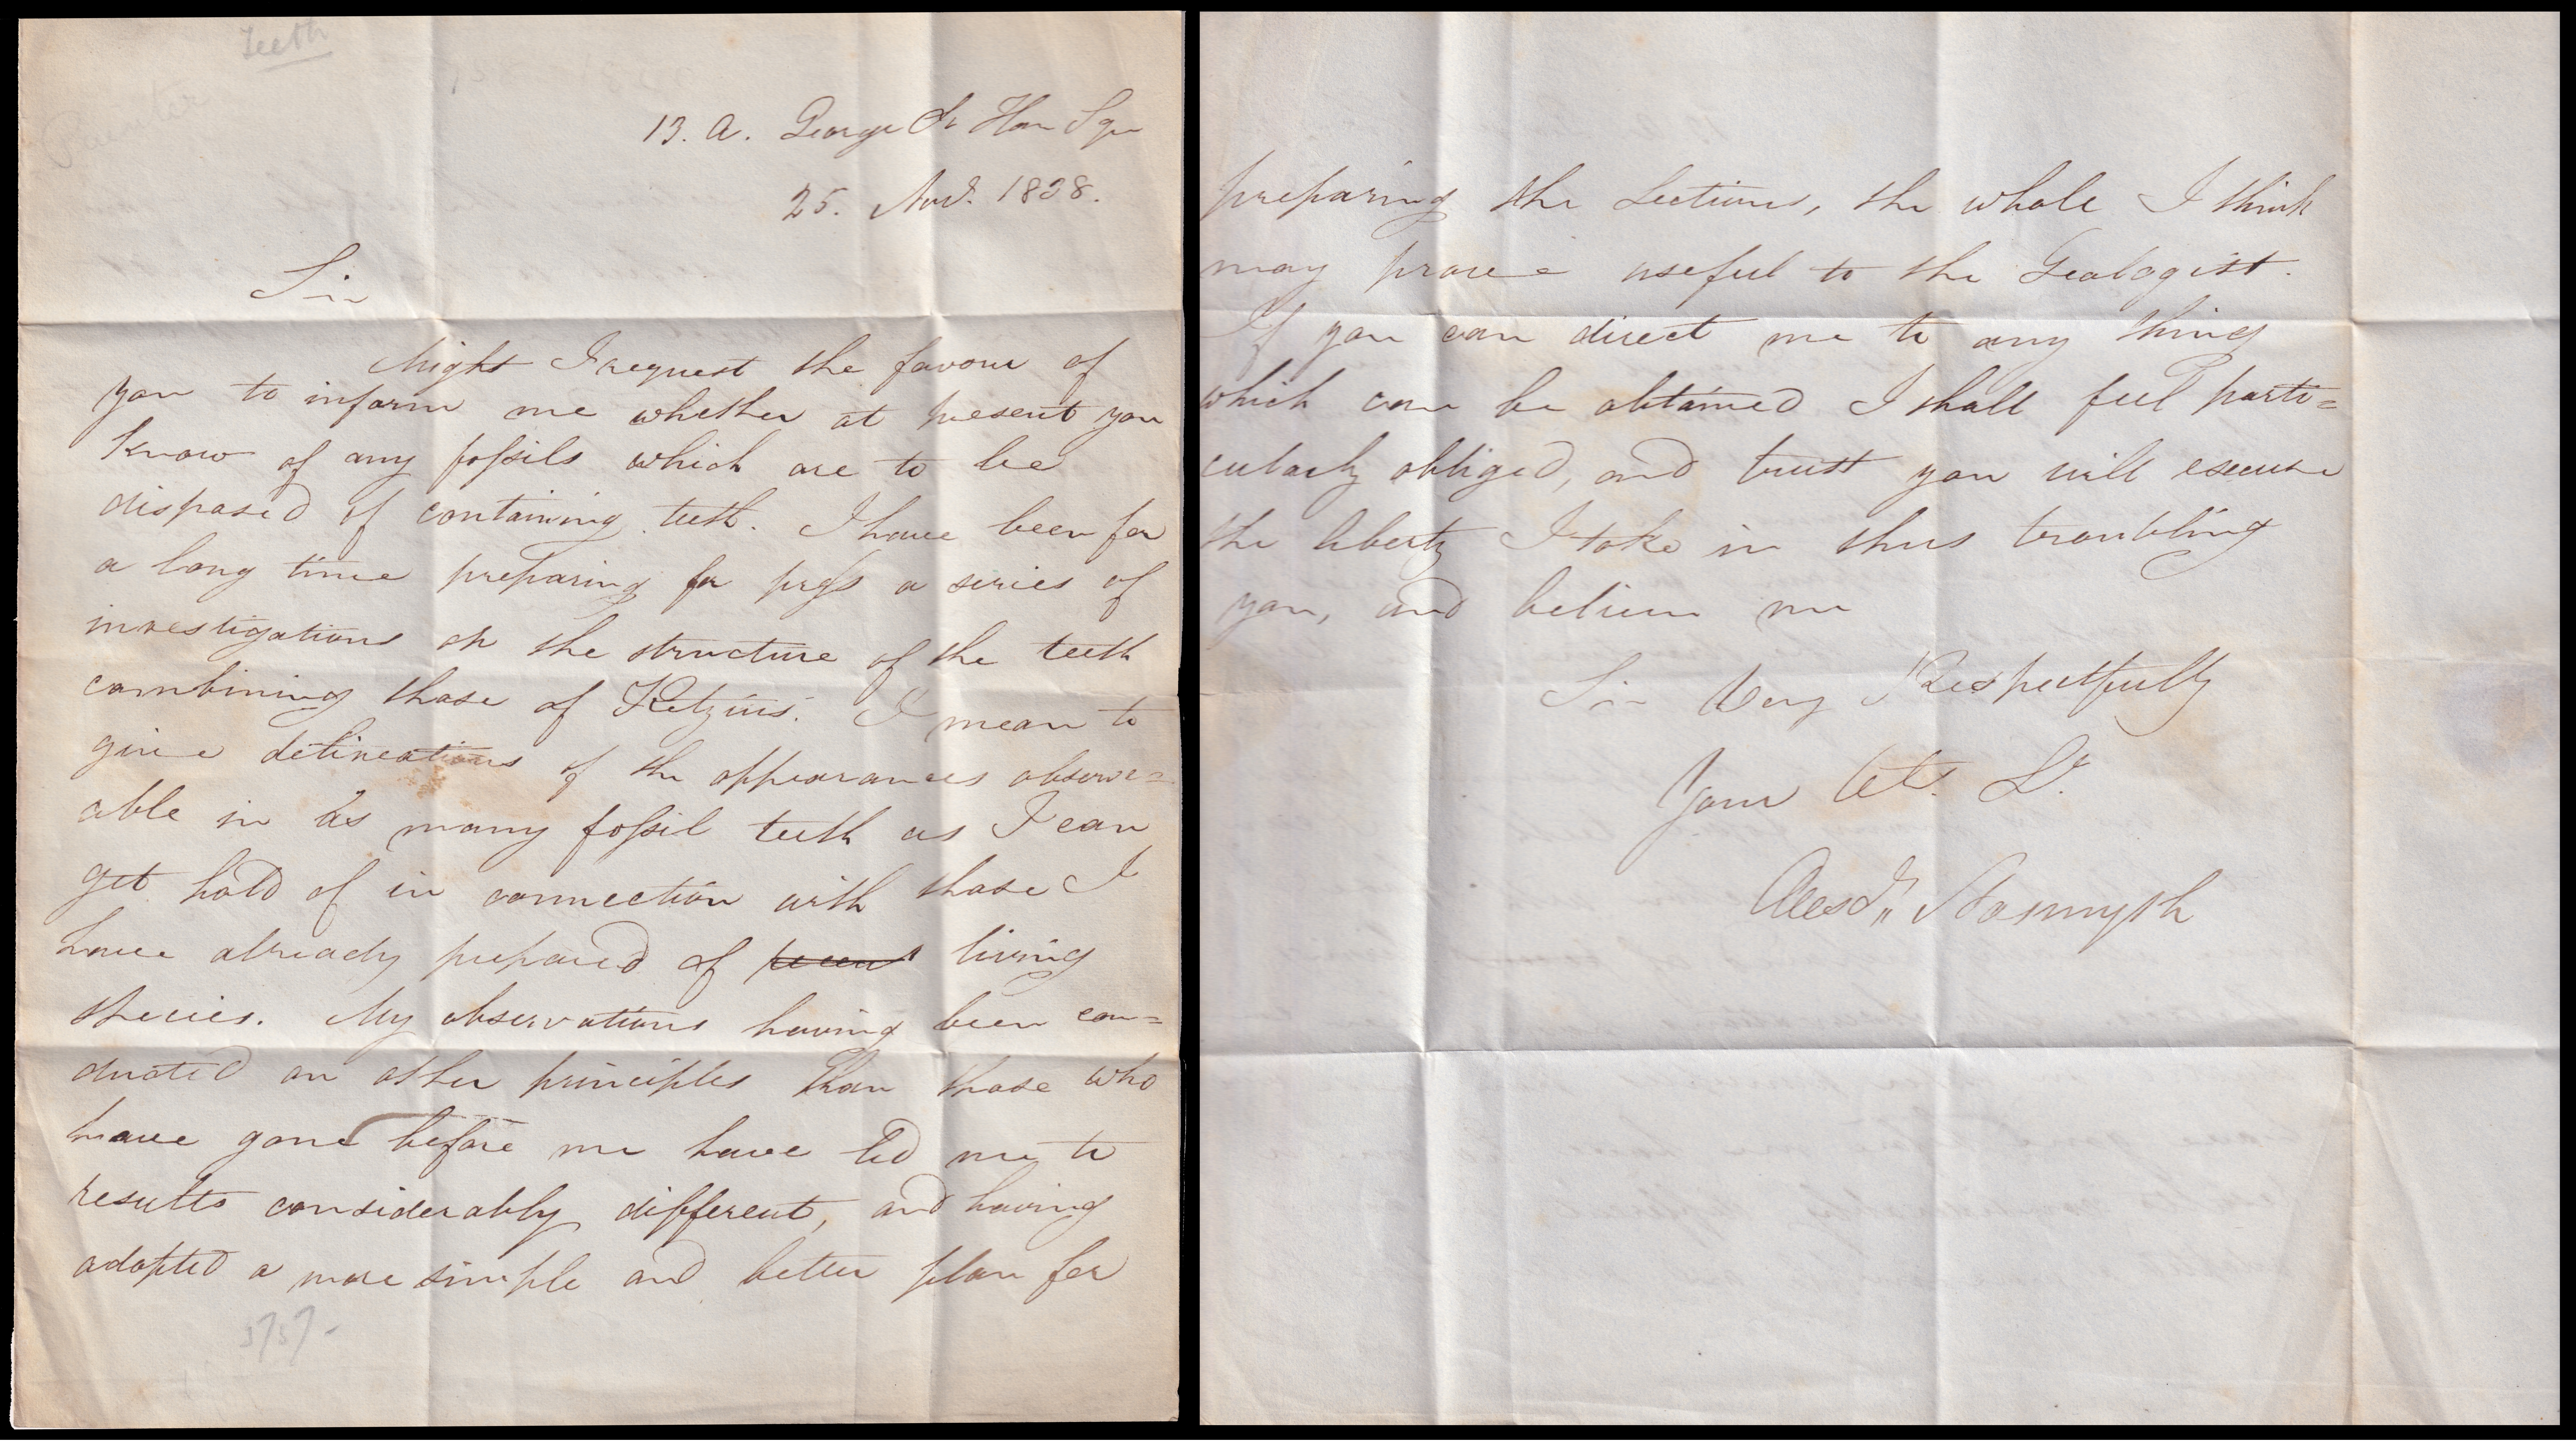 Teeth
13. A. George St Han Sqr
25. Novr. 1838.
Sir
Might I request the favour of
you to inform me whether at present you
know of any fossils which are to be
disposed of containing teeth. I have been for
a long time preparing for press a series of
investigations on the structure of the teeth
combining those of Retzius. I mean to
give delineations of the appearances observ=
able in as many fossil teeth as I can
get hold of in connection with those I
have already prepared of recent living
species. My observations having been con=
ducted on other principles than those who
have gone before me have led me to
results considerably different, and having
adopted a more simple and better plan for
preparing the Sections, the whole I think
may prove useful to the Geologist.
If you can direct me to any thing
which can be obtained I shall feel parti=
cularly obliged, and trust you will excuse
the liberty I take in thus troubling
you, and believe me
Sir Very Respectfully
Your Obt. St.
Alexdr. Nasmyth